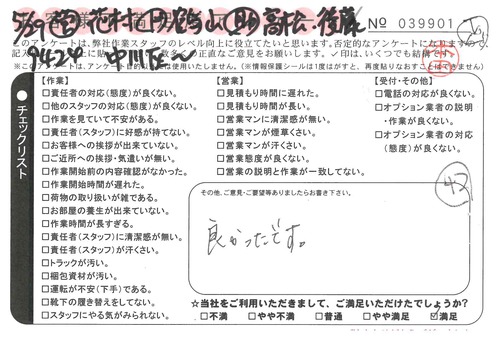 No 039901
このアンケートは、弊社作業スタッフのレベル向上に役立てたいと思います。否定的なアンケートになりますので、
9424 中川区〜
※このアンケートは、営業目的では使用いたしません。(※情報保護シールは1度はがすと、再度貼りなおすことはできません)
チェックリスト
【作業】
□責任者の対応(態度)が良くない。
□他のスタッフの対応(態度)が良くない。
□作業を見ていて不安がある。
□責任者(スタッフ)に好感が持てない。
□お客様への挨拶が出来ていない。
□ご近所への挨拶・気遣いが無い。
□作業開始前の内容確認がなかった。
□作業開始時間が遅れた。
□荷物の取り扱いが雑である。
□お部屋の養生が出来ていない。
□作業時間が長すぎる。
□責任者(スタッフ)に清潔感が無い。
□責任者(スタッフ)が汗くさい。
□トラックが汚い。
□梱包資材が汚い。
□運転が不安(下手)である。
□靴下の履き替えをしてない。
□スタッフにやる気がみられない。
【営業】
□見積もり時間に遅れた。
□見積もり時間が長い。
□営業マンに清潔感が無い。
□営業マンが煙草くさい。
□営業マンが汗くさい。
□営業態度が良くない。
□営業の説明と作業が一致してない。
【受付・その他】
□電話の対応が良くない。
□オプション業者の説明・作業が良くない。
□オプション業者の対応(態度)が良くない。
42
その他、ご意見・ご要望等ありましたらお書き下さい。
良かったです。
☆当社をご利用いただきまして、ご満足いただけたでしょうか?
□不満 □やや不満 □普通 □やや満足 ☑満足